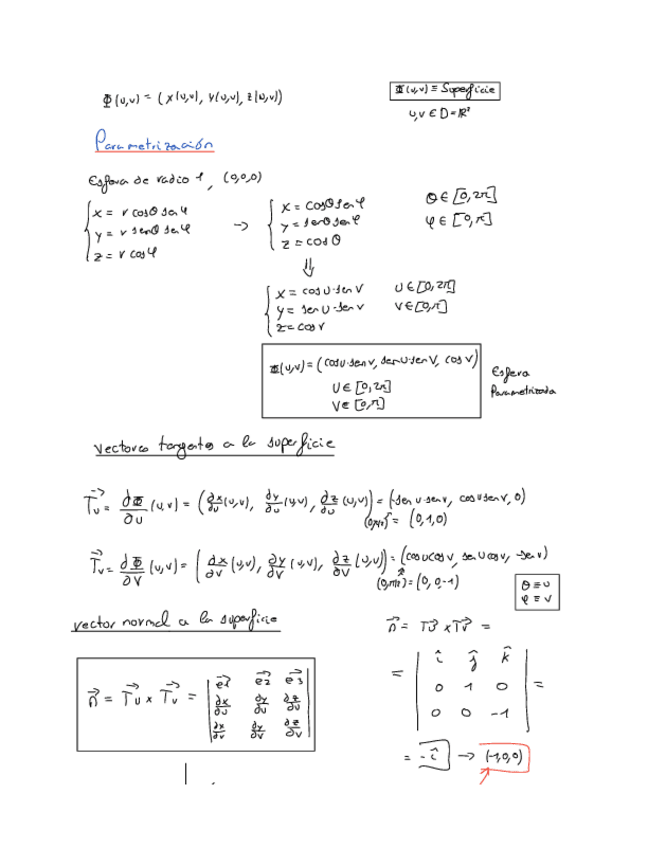 Φ(u,v) = (x(u,v), y(u,v), z(u,v))
Φ(u,v) ≡ Superficie
u,v ∈ D = ℝ²
Parametrización
Esfera de radio 1, (0,0,0)
x = r cosθ senφ
y = r senθ senφ
z = r cosφ
→
x = cosθ senφ
y = senθ senφ
z = cosθ
θ ∈ [0,2π]
φ ∈ [0,π]
⇓
x = cosu·senv
y = senu·senv
z = cosv
u ∈ [0,2π]
v ∈ [0,π]
Φ(u,v) = (cosu·senv, senu·senv, cosv)
u ∈ [0,2π]
v ∈ [0,π]
Esfera
Parametrizada
Vectores tangentes a la superficie
T⃗u = ∂Φ/∂u (u,v) = (∂x/∂u (u,v), ∂y/∂u (u,v), ∂z/∂u (u,v)) = (-senu·senv, cosu senv, 0)
(0,π/2) = (0,1,0)
T⃗v = ∂Φ/∂v (u,v) = (∂x/∂v (u,v), ∂y/∂v (u,v), ∂z/∂v (u,v)) = (cosu cosv, senu cosv, -senv)
(0,π/2) = (0,0,-1)
θ ≡ u
φ ≡ v
vector normal a la superficie
n⃗ = T⃗u x T⃗v = | e⃗1 e⃗2 e⃗3 |
| ∂x/∂u ∂y/∂u ∂z/∂u |
| ∂x/∂v ∂y/∂v ∂z/∂v |
n⃗ = T⃗u x T⃗v =
= | î ĵ k̂ |
| 0 1 0 | =
| 0 0 -1 |
= -î → (-1,0,0)